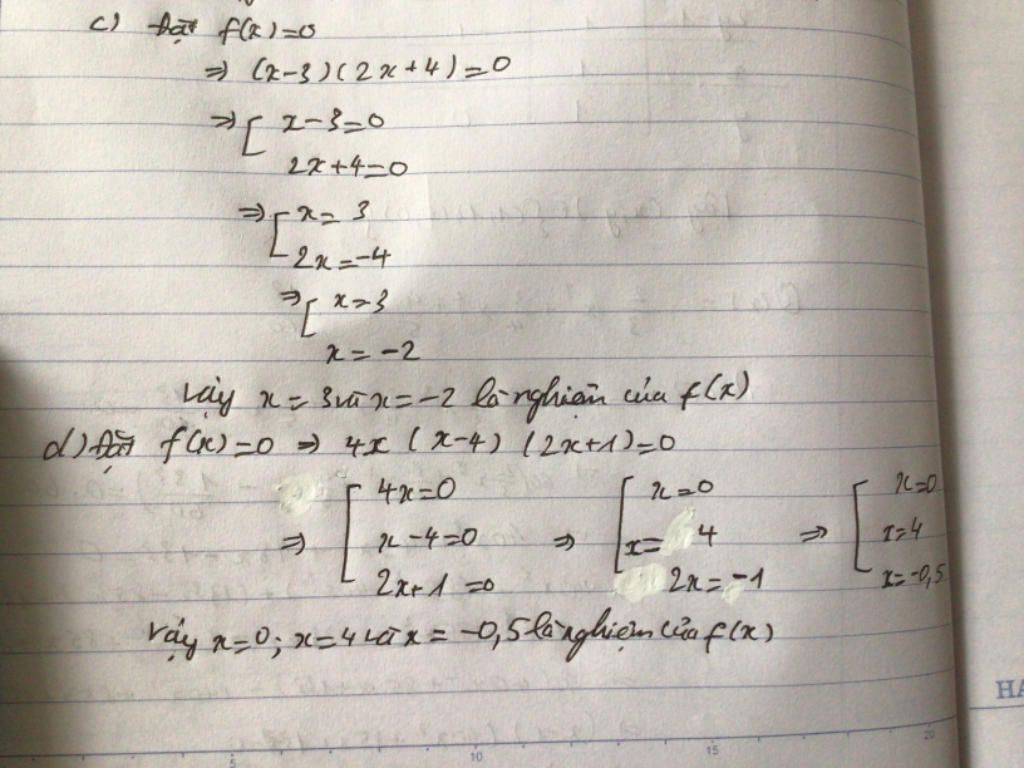 c) Đặt f(x)=0
⇒ (x-3)(2x+4)=0
⇒ [ x-3=0
2x+4=0
⇒ [ x= 3
2x=-4
⇒ [ x=3
x= -2
Vậy x= 3 và x=-2 là nghiệm của f(x)
d) Đặt f(x)=0 ⇒ 4x (x-4) (2x+1)=0
⇒ [ 4x=0 ⇒ [ x=0 ⇒ [ x=0
x-4=0 x= 4 x=4
2x+1=0 2x=-1 x=-0,5
Vậy x=0; x=4 và x= -0,5 là nghiệm của f(x)
5 10 15 20
HA